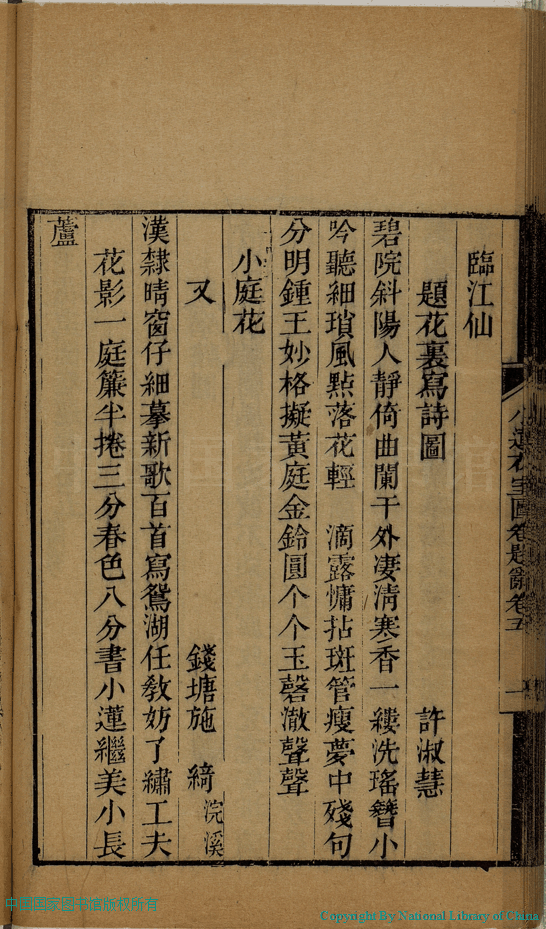 臨江仙
題花裏寫詩圖 許淑慧
碧院斜陽人靜倚曲闌干外淒淸寒香一縷洗瑤簪小
吟聽細瑣風點落花輕 滴露慵拈斑管瘦夢中殘句
分明鍾王妙格擬黃庭金鈴圓个个玉磬澈聲聲
小庭花
又 錢塘施綺浣溪
漢隸晴窗仔細摹新歌百首寫鴛湖任敎妨了繡工夫
花影一庭簾半捲三分春色八分書小蓮繼美小長
蘆
卷題辭卷五
一
中国国家图书馆
中国国家图书馆版权所有
Copyright By National Library of China